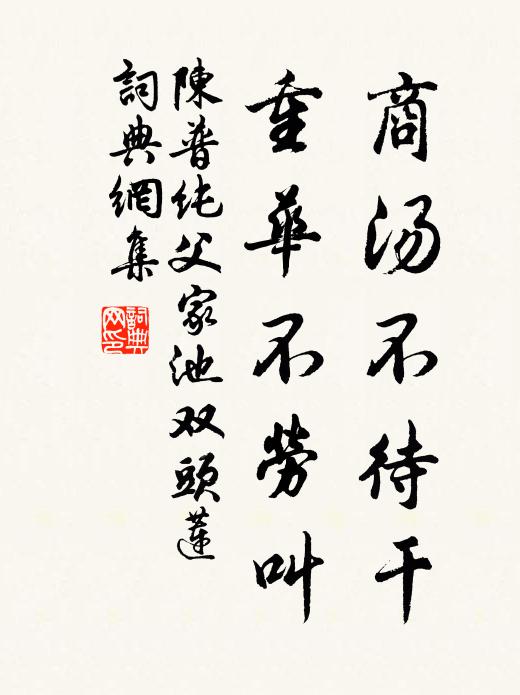 商汤不待干
重華不勞叫
陳普纯父家池双頭蓮
詞典網集
詞典
网印